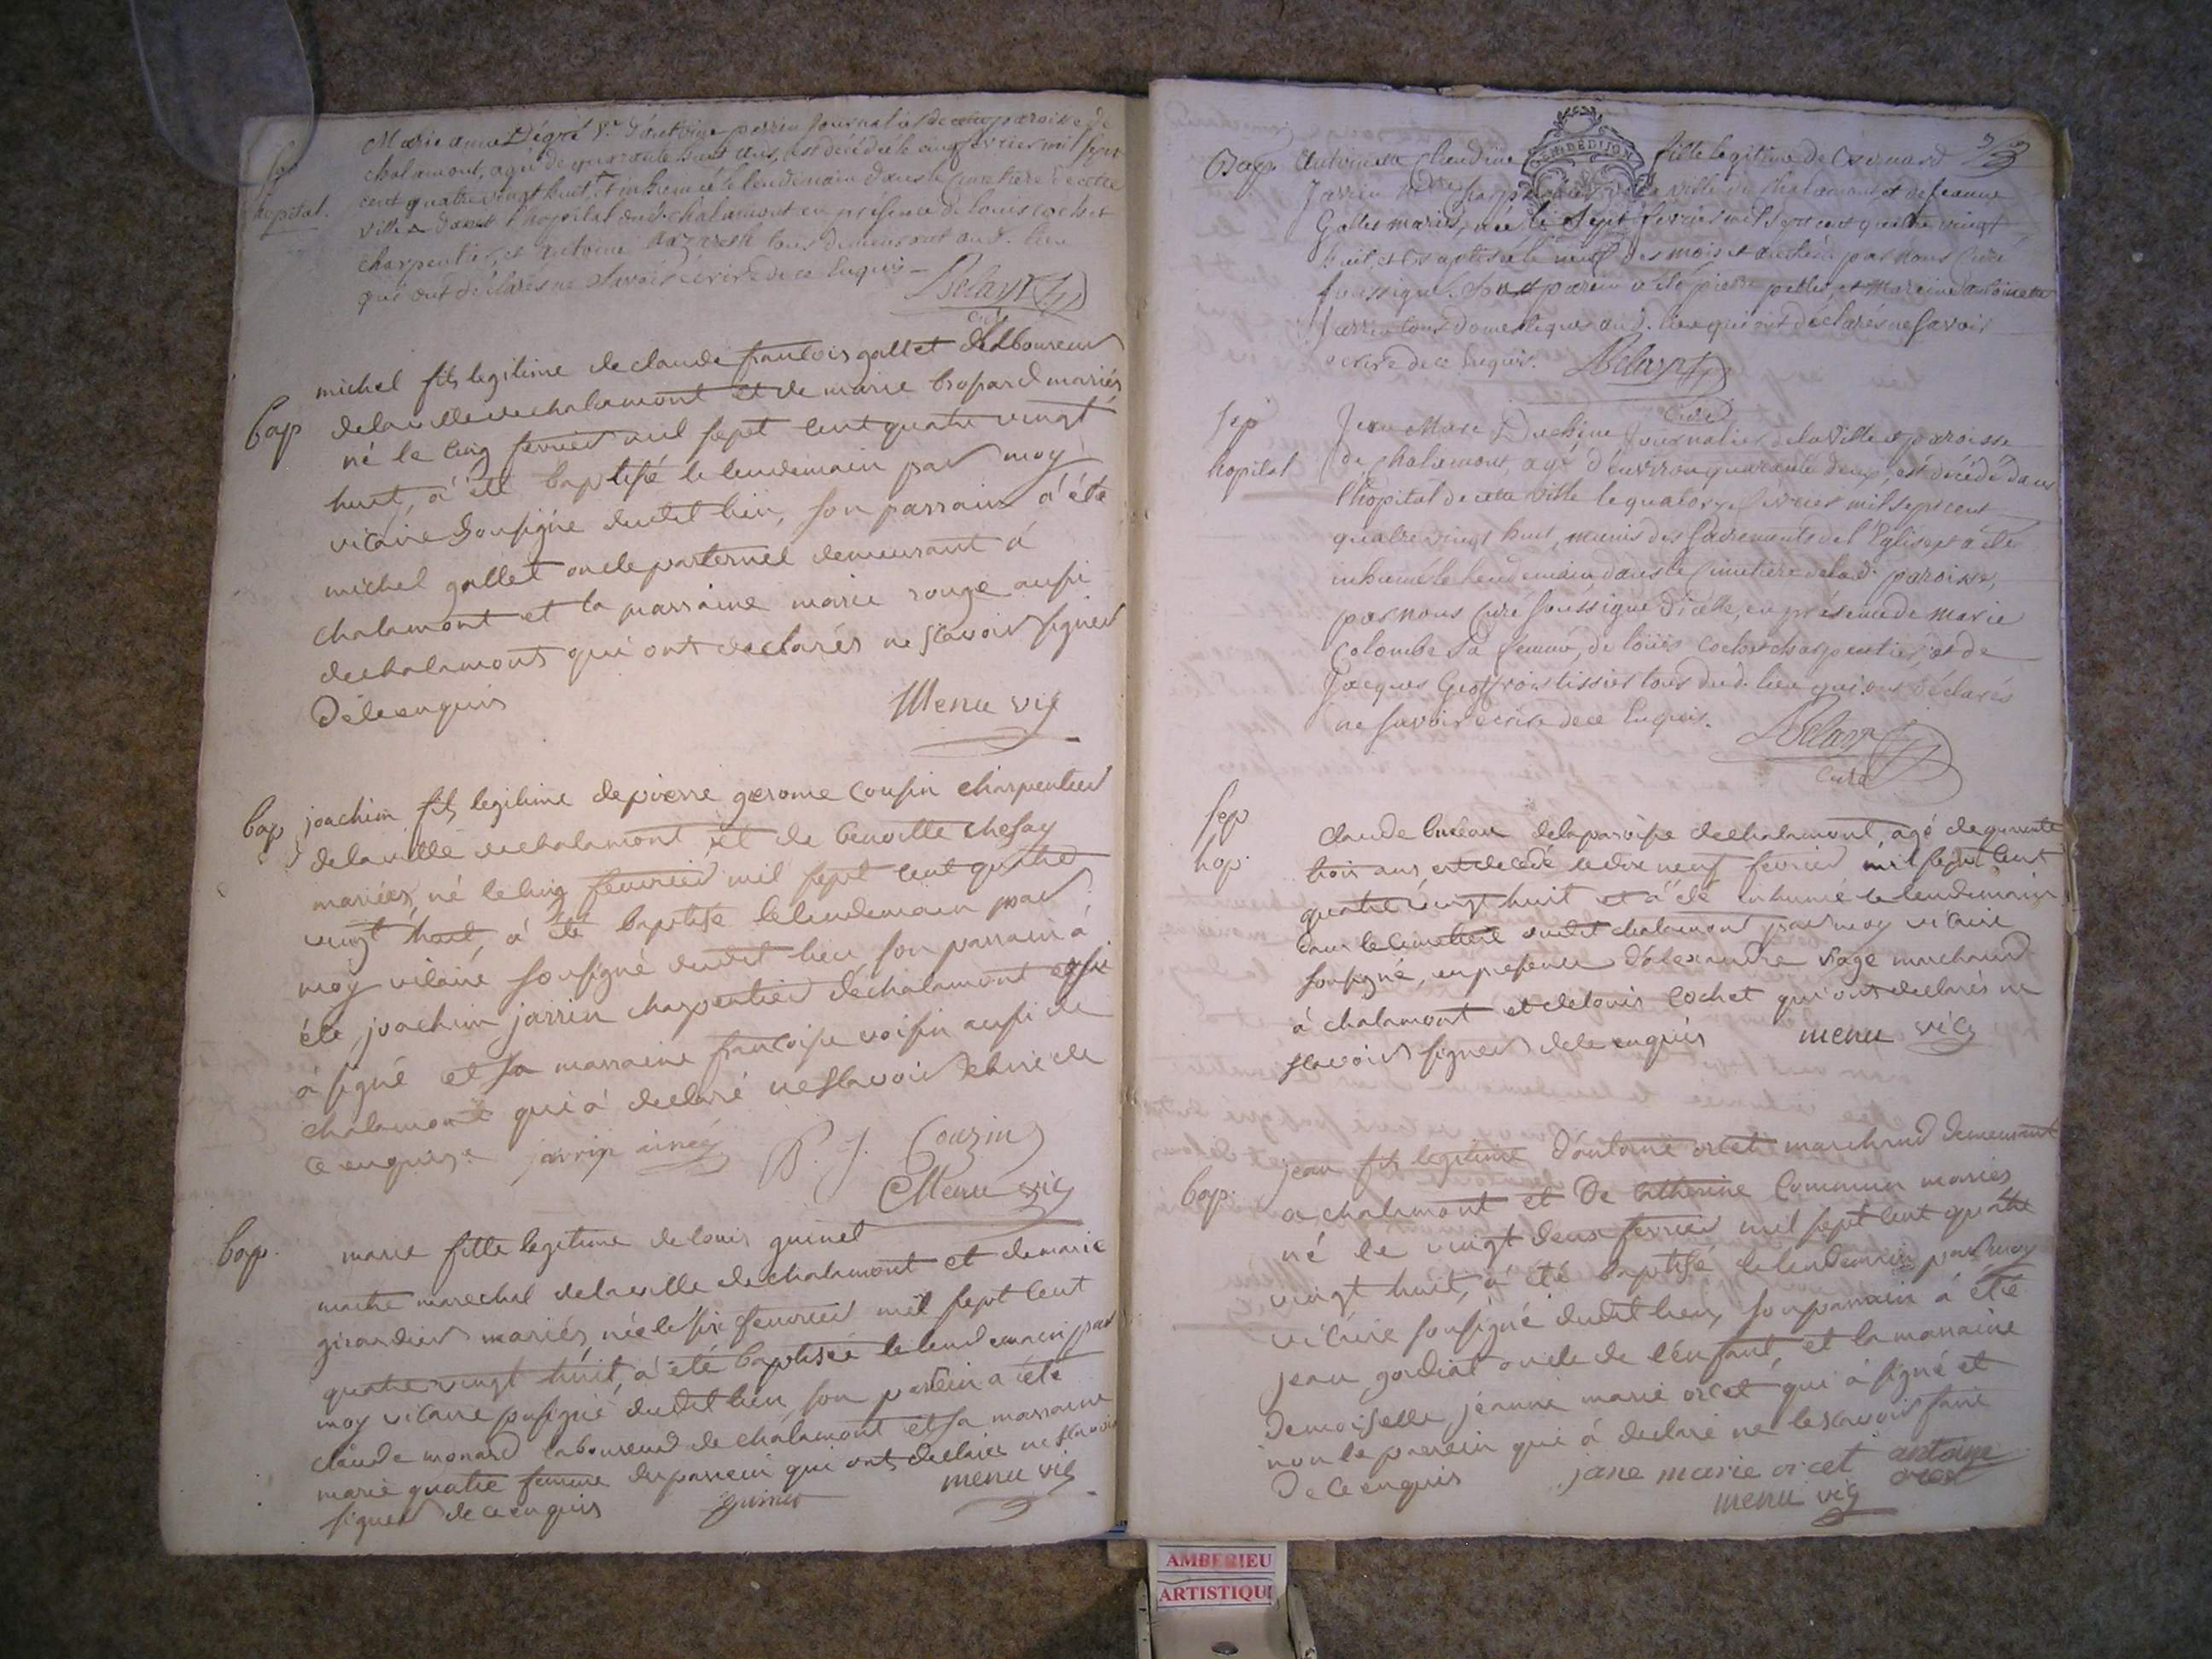 Sep
hopital.
Marie anne Dégré Ve d'antoine perrin Journalier de cette paroisse de
chalamont, agée de quarante huit ans, est décédée le cinq fevrier mil sept
cent quatre vingt huit, et inhumée le lendemain dans le Cimetiere de cette
ville dans l'hopital dud. chalamont en presence de Louis cochet
charpentier, et antoine tous demeurant aud. lieu
qui ont déclarés ne Savoir écrire de ce Enquis
Curé
bap
michel fils legitime de claude francois gallet laboureur
de la ville de chalamont et de marie bropard mariés
né le cinq fevrier mil sept cent quatre vingt
huit, a été baptisé le lendemain par moy
vicaire Sousigné dudit lieu, son parrain a été
michel gallet oncle parternel demeurant a
chalamont et la marraine marie rouge aussi
de chalamont qui ont declarés ne scavoir signer
de ce enquis
Menu vic
bap
joachim fils legitime de pierre gerome cousin charpentier
de la ville de chalamont et de benoitte chesay
mariés, né le cinq fevrier mil sept cent quatre
vingt huit, a été baptisé le lendemain par
moy vicaire sousigné dudit lieu son parrain a
été joachim jarrin charpentier de chalamont qui
a signé et sa marraine francoise voisin aussi de
chalamont qui a declaré ne scavoir de
ce enquise jarrin ainé
P. J. Couzin
Menu vic
bap.
marie fille legitime de louis guinet
maitre marechal de la ville de chalamont et de marie
girardier mariés, née le six fevrier mil sept cent
quatre vingt huit, a été baptisée le lendemain par
moy vicaire sousigné dudit lieu, son parrein a été
claude monard laboureur de chalamont et sa marraine
marie quatre femme du parrein qui ont declarés ne scavoir
signer de ce enquis guinet menu vic
GEN. DE DIJON
Bap.
antoinette claudine fille legitime de Bernard
Jarrin charpentier de la ville de chalamont, et de Jeanne
Gallet mariés, née le Sept fevrier mil sept cent quatre vingt
huit, et baptisée le neuf des mois et an susd. par nous Curé
soussigné. Son parrein a été pierre et Mareine antoinette
Jarrin tous domestiques aud. lieu qui ont déclarés ne savoir
ecrire de ce Enquis.
Curé
Sep
hopital
Jean Marc Duchêne Journalier de la Ville et paroisse
de Chalamont, agé d'environ quarante deux, est décédé dans
l'hopital de cette Ville le quatorze fevrier mil sept cent
quatre vingt huit, munis des Sacrements de l'Eglise, et a été
inhumé le lendemain dans le Cimetiere de lad. paroisse,
par nous Curé soussigné d'icelle, en présence de Marie
Colombe sa femme, de loüis cochet charpentier, et de
Jacques Geoffroi tissier tous dud. lieu qui ont déclarés
ne savoir écrire de ce Enquis.
Curé
sep
hop.
claude de la paroisse de chalamont, agé de quarante
trois ans est decedé le dix neuf fevrier mil sept cent
quatre vingt huit et a été inhumé le lendemain
dans le cimetiere dudit chalamont par moy vicaire
sousigné, en presence d'alexandre viage marchand
a chalamont et de louis cochet qui ont declarés ne
scavoir signer de ce enquis menu vic
bap.
jean fils legitime d'antoine orcet marchand demeurant
a chalamont et De catherine Commun mariés
né le vingt deux fevrier mil sept cent quatre
vingt huit, a été baptisé le lendemain par moy
vicaire sousigné dudit lieu, son parrain a été
jean gordiat oncle de l'enfant, et la marraine
Demoiselle jeanne marie orcet qui a signé et
non le parrein qui a declaré ne le scavoir faire
De ce enquis jane marie orcet antoine
orcet
menu vic
AMBERIEU
ARTISTIQU